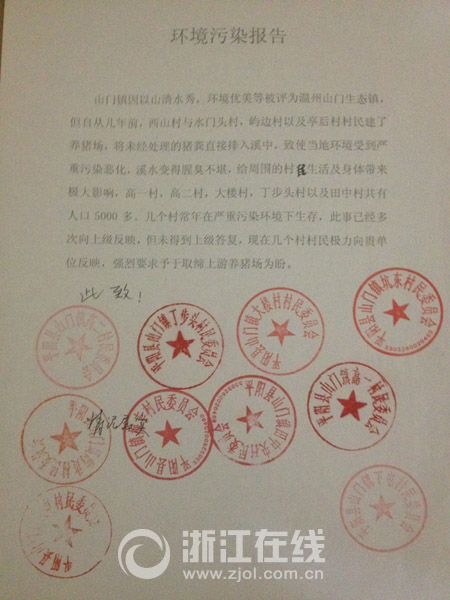 环境污染报告
山门镇因以山清水秀，环境优美等被评为温州山门生态镇，
但自从几年前，西山村与水门头村，屿边村以及亭后村村民建了
养猪场，将未经处理的猪粪直接排入溪中，致使当地环境受到严
重污染恶化，溪水变得腥臭不堪，给周围的村民生活及身体带来
极大影响，高一村，高二村，大楼村，丁步头村以及田中村共有
人口5000多、几个村常年在严重污染环境下生存，此事已经多
次向上级反映，但未得到上级答复，现在几个村村民极力向贵单
位反映，强烈要求予于取缔上游养猪场为盼。
此致！
平阳县山门镇高一村民委员会
平阳县山门镇丁步头村民委员会
平阳县山门镇大楼村村民委员会
平阳县山门镇坑东村民委员会
情况属实
村民委员会
平阳县山门镇
村民委员会
平阳县山门镇田中央村民委员会
平阳县山门镇高一村民委员会
平阳县
村民委员会
平阳县山门镇下
村民委员会
浙江在线
www.zjol.com.cn